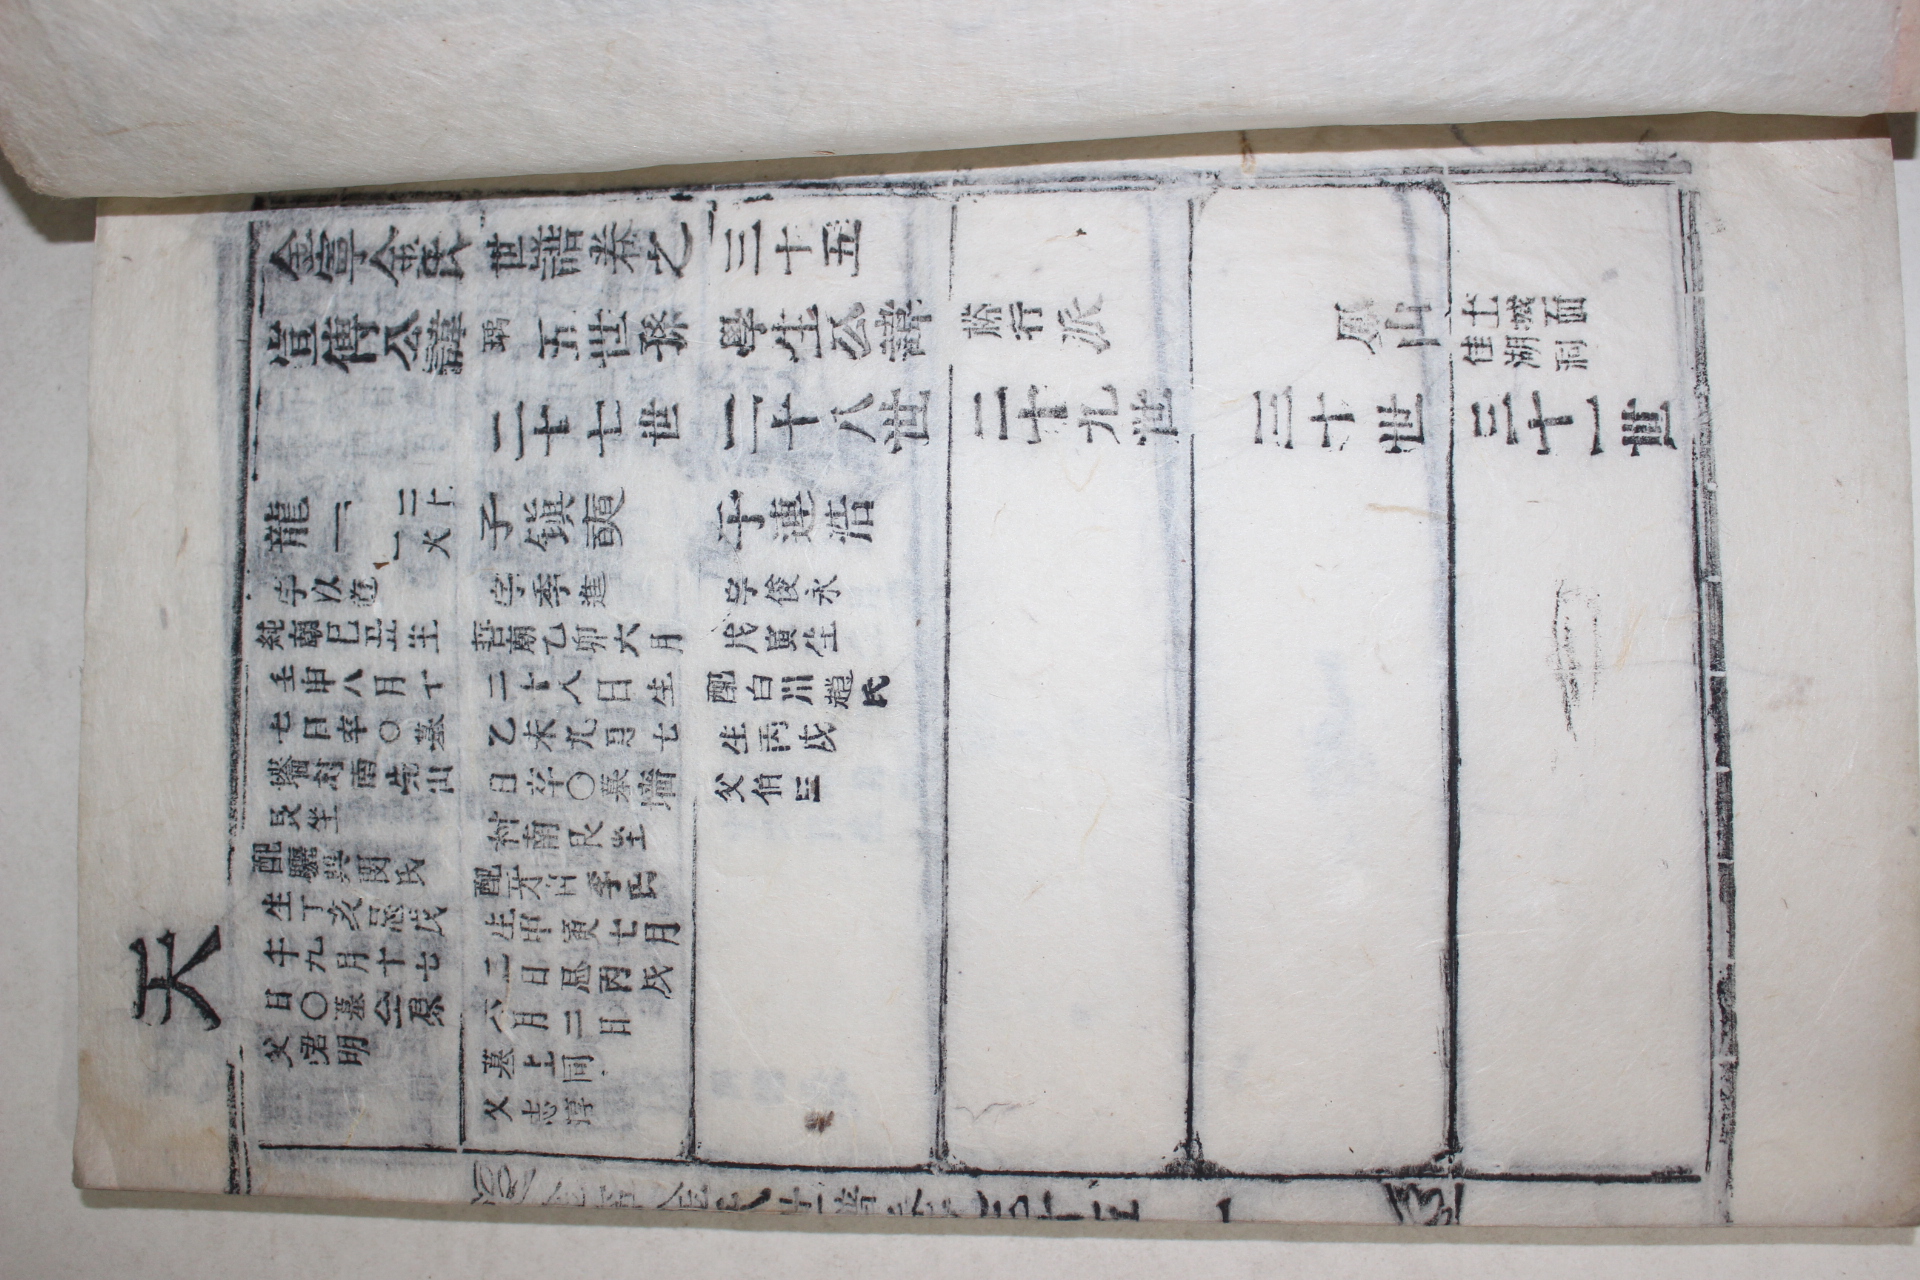 天
金寧金氏世譜卷之三十五
宣傳公諱瑀五世孫學生公諱行派鳳山土城面
佳湖洞
二十七世
二十八世
二十九世
三十世
三十一世
龍一
二十
一火
字以
純廟己丑生
壬申八月十
七日卒〇墓
墻村南先山
艮坐
配驪興閔氏
生丁亥忌戊
午九月十七
日〇墓仝原
父君明
子鎭奭
字季進
哲廟乙卯六月
二十八日生
乙未九月七
日卒〇墓墻
村南艮坐
配牙山李氏
生甲寅七月
二日忌丙戌
六月二日
墓上同
父志淳
子連浩
字俊永
戊寅生
配白川趙氏
生丙戌
父伯
金寧金氏世譜卷之三十五
一